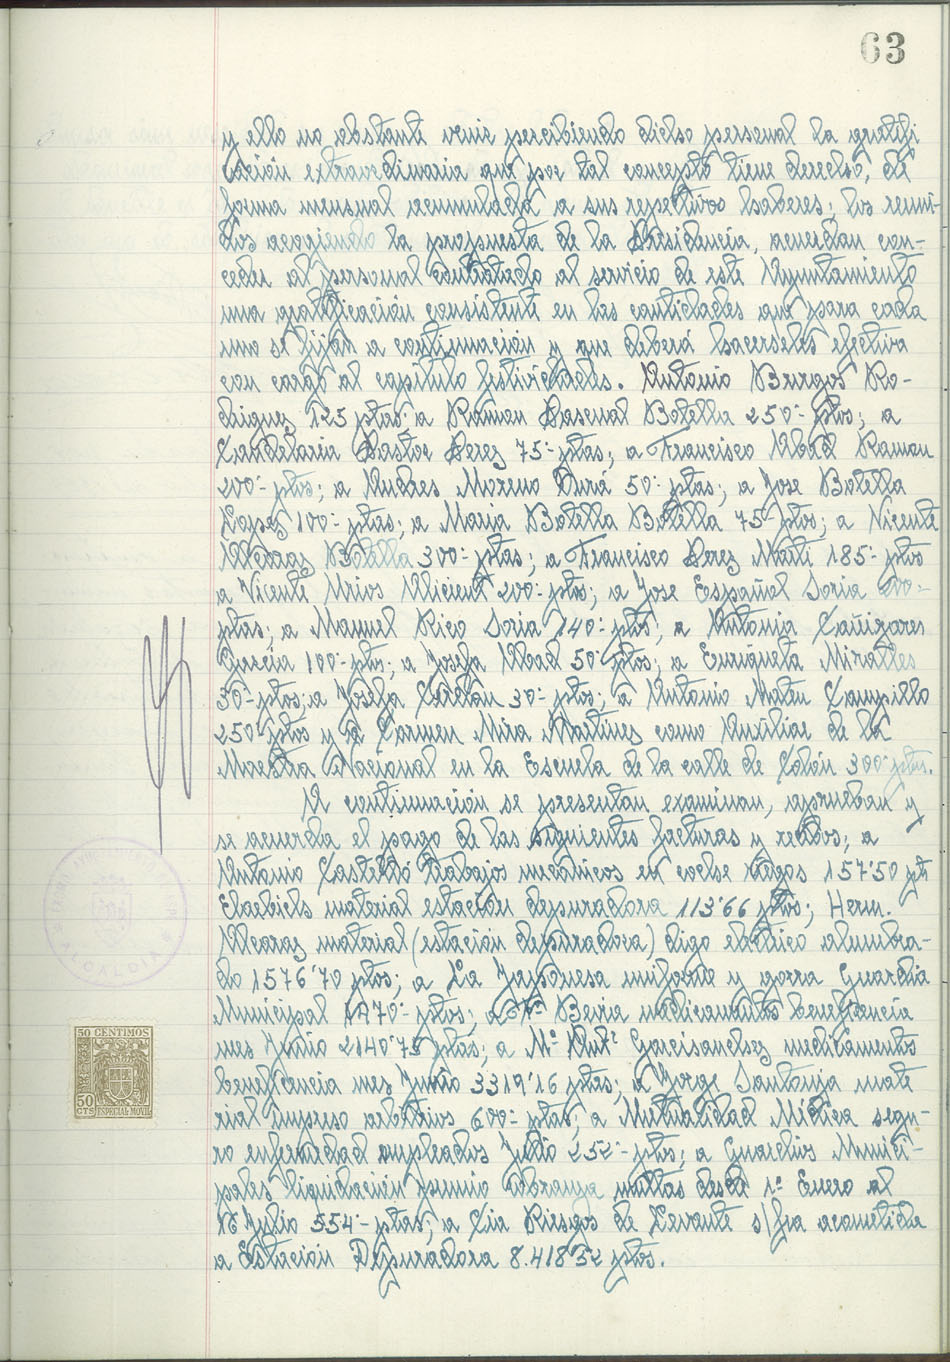 63
y ello no obstante venir percibiendo dicho personal la gratifi
cación extraordinaria que por tal concepto tiene derecho, de
forma mensual acumulada a sus respetivos haberes; los reuni-
dos acogiendo la propuesta de la Presidencia, acuerdan con-
ceder al personal contratado al servicio de este Ayuntamiento
una gratificación consistente en las cantidades que para cada
uno se fijan a continuación y que deberá hacerseles efectiva
con cargo al capítulo festividades. Antonio Burgos Ro-
driguez 125 ptas; a Ramon Pascual Botella 250- ptas; a
Candelaria Pastor Perez 75- ptas; a Francisco Abad Ramon
200- ptas; a Andres Moreno Durá 50- ptas; a Jose Botella
Lopez 100- ptas; a Maria Botella Botella 75- ptas; a Vicente
Alcaraz Botella 300- ptas; a Francisco Perez Marti 185- ptas
a Vicente Mico Alicient 200- ptas; a Jose Español Soria 200-
ptas; a Manuel Rico Soria 140- ptas; a Antonia Cañizares
Garcia 100- ptas; a Josefa Abad 50- ptas; a Enriqueta Miralles
30- ptas; a Josefa Catalán 30- ptas; a Antonio Mateu Campillo
250- ptas y a Carmen Mira Martinez como Auxiliar de la
Maestra Nacional en la Escuela de la calle de Colón 300 ptas.
A continuación se presentan examinan, aprueban y
se acuerda el pago de las siguientes facturas y recibos; a
Antonio Castelló trabajos mecánicos en coche riegos 157'50 pts
material estación depuradora 113'66 ptas; Herm.
Alcaraz material (estación depuradora) digo eléctrico alumbra-
do 1576'70 ptas; a La Japonesa uniforme y gorra Guardia
Municipal 1470- ptas; a Fco Bevia medicamentos beneficencia
mes Junio 2140'75 ptas; a Mº Antº Garcisanchez medicamentos
beneficencia mes Junio 3319'16 ptas; a Jorge Santonja mate
rial impreso arbitrios 600- ptas; a Mutualidad Médica segu-
ro enfermedad empleados Julio 252- ptas; a Guardias Munici-
pales liquidación premio cobranza multas desde 1º Enero al
16 Julio 554- ptas; a Cia Riegos de Levante s/fra acometida
a Estación Depuradora 8.418'52 ptas.
ALCALDIA
50 CENTIMOS
50
CTS
ESPECIAL MOVIL